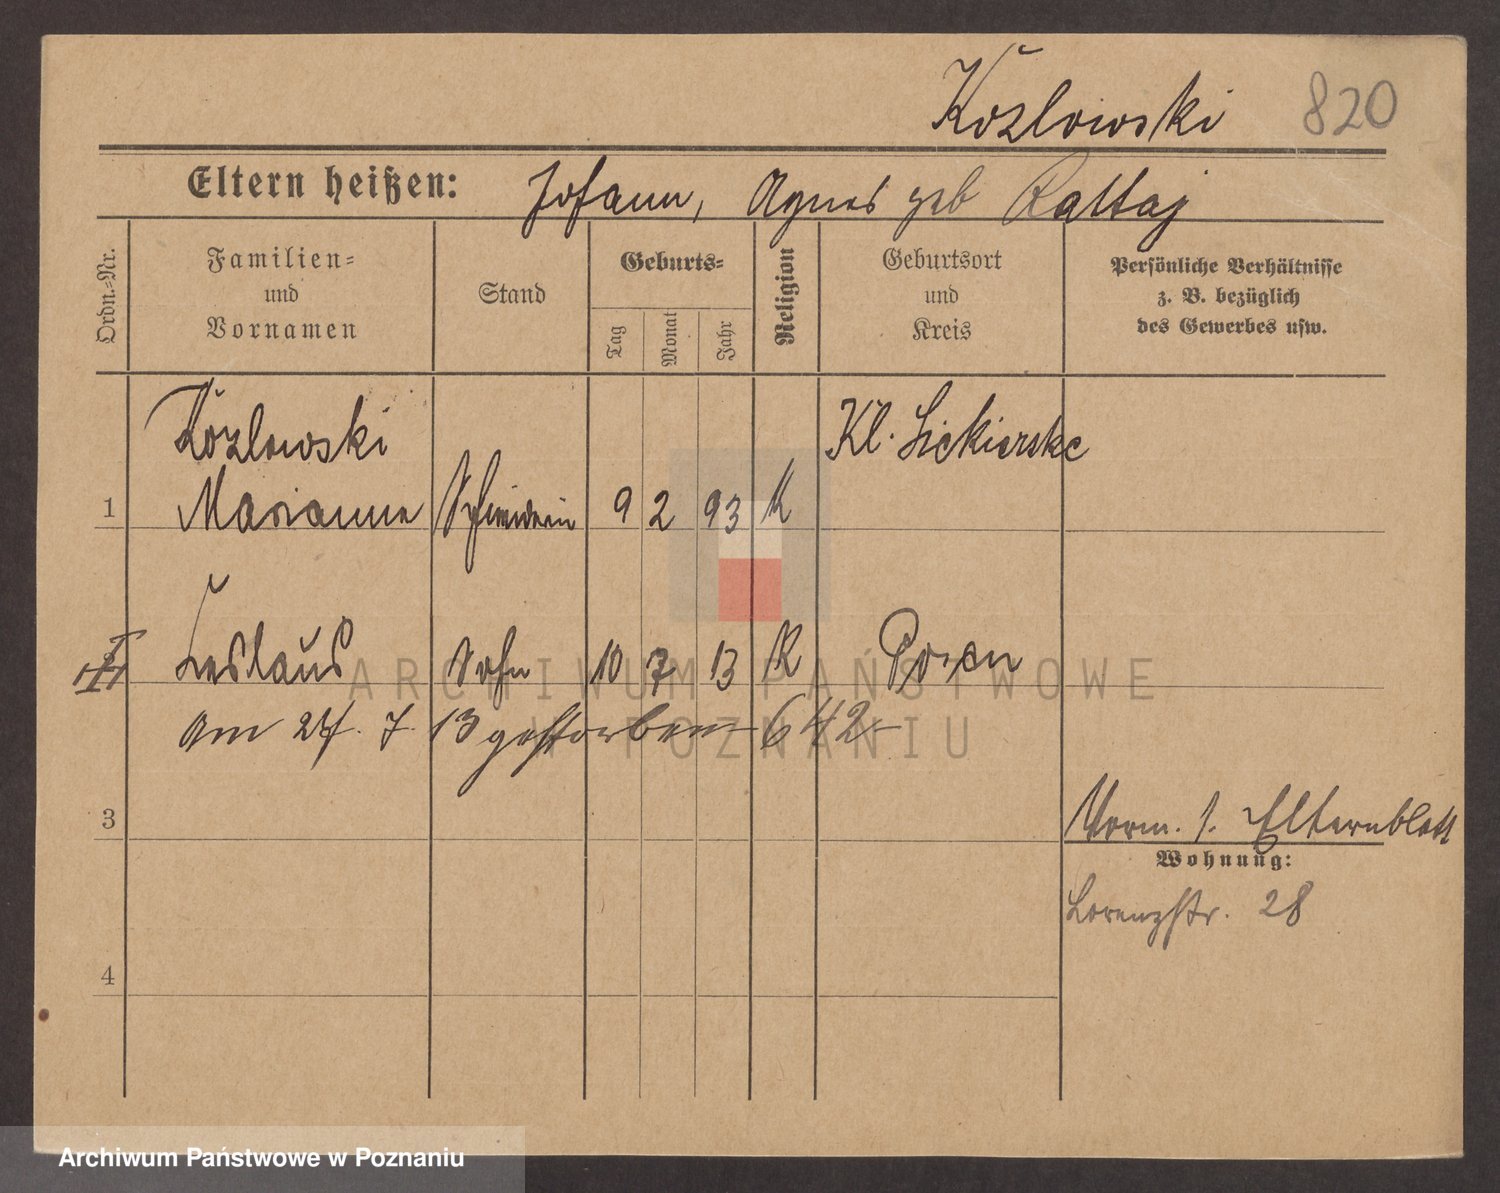 Kozlowski 820
Eltern heißen: Johann, Agnes geb Rattaj
Ordn.-Nr.
Familien-
und
Vornamen
Stand
Geburts-
Tag
Monat
Jahr
Religion
Geburtsort
und
Kreis
Persönliche Verhältnisse
z. B. bezüglich
des Gewerbes usw.
Kozlowski Kl. Siekierske
1 Marianne Schneiderin 9 2 93 K
Leslaus Sohn 10 7 13 K Posen
ARCHIWUM PAŃSTWOWE
W POZNANIU
am 27. 7. 13 gestorben 642
3
Verm. s. Elternblatt
Wohnung:
Lorenzstr. 28
4
Archiwum Państwowe w Poznaniu